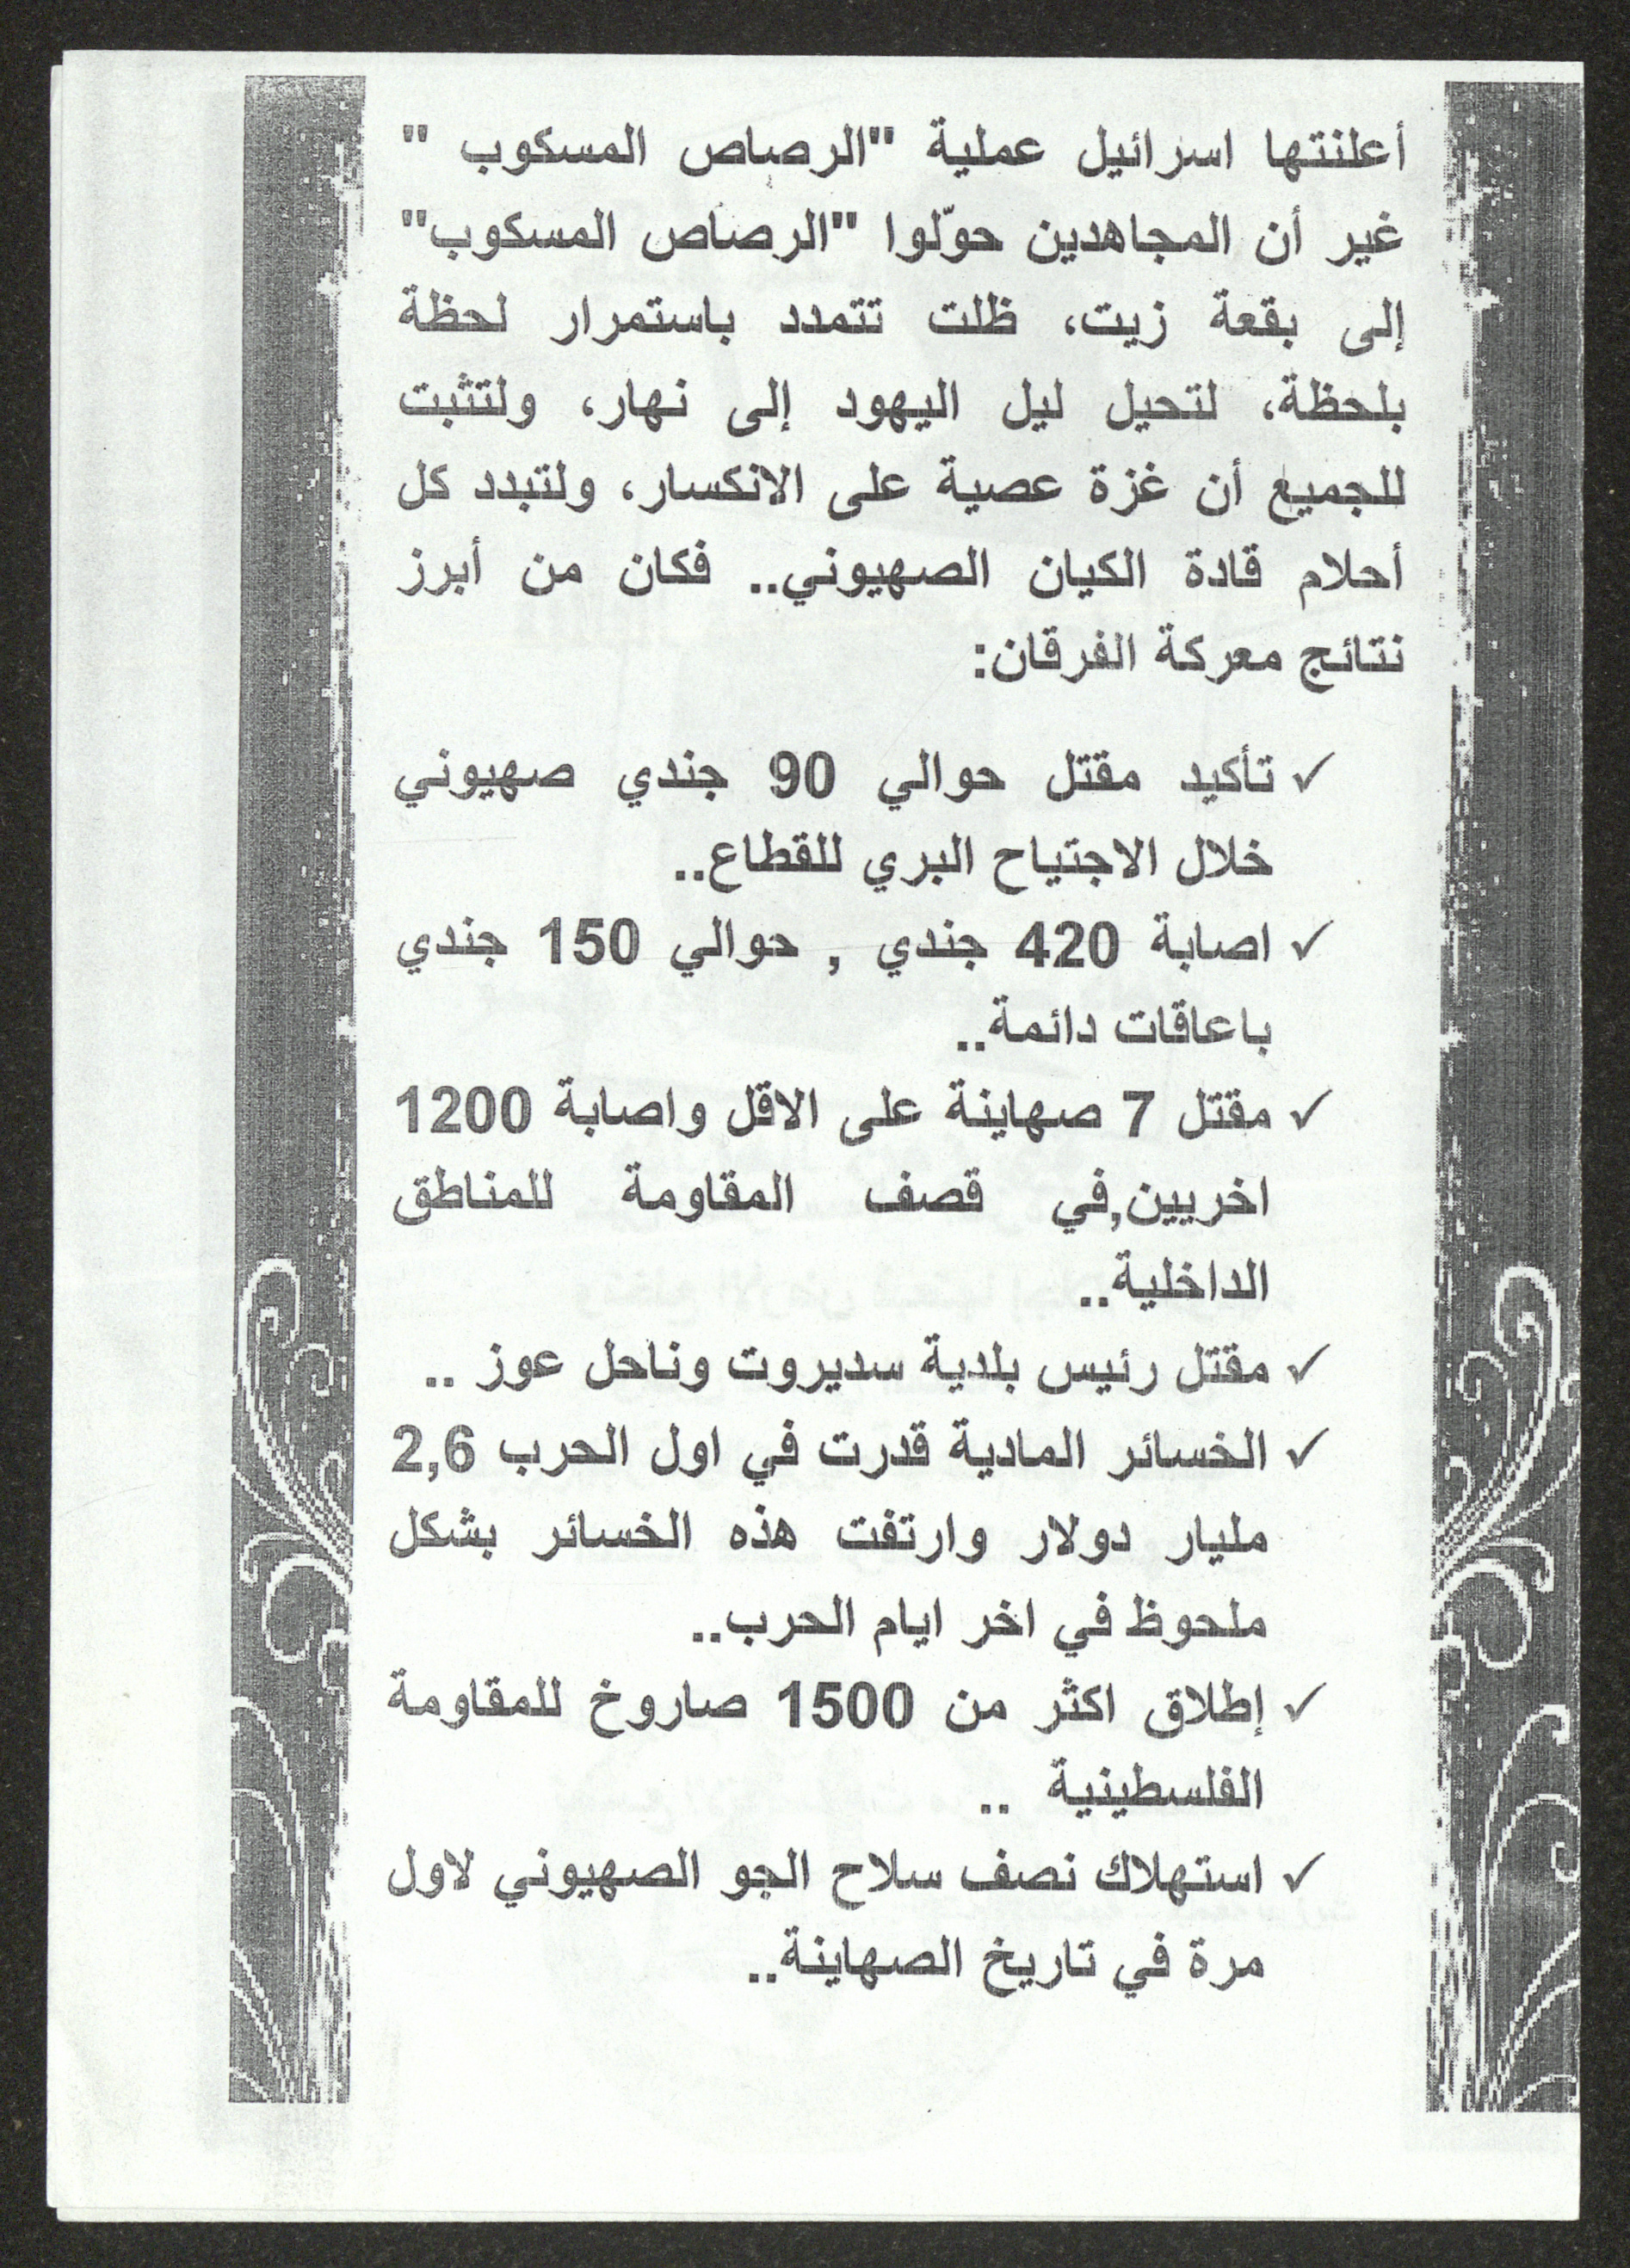 أعلنتها اسرائيل عملية "الرصاص المسكوب "
غير أن المجاهدين حوّلوا "الرصاص المسكوب"
إلى بقعة زيت، ظلت تتمدد باستمرار لحظة
بلحظة، لتحيل ليل اليهود إلى نهار، ولتثبت
للجميع أن غزة عصية على الانكسار، ولتبدد كل
أحلام قادة الكيان الصهيوني.. فكان من أبرز
نتائج معركة الفرقان:
✓ تأكيد مقتل حوالي 90 جندي صهيوني
خلال الاجتياح البري للقطاع..
✓ اصابة 420 جندي , حوالي 150 جندي
باعاقات دائمة..
✓ مقتل 7 صهاينة على الاقل واصابة 1200
اخريين,في قصف المقاومة للمناطق
الداخلية..
✓ مقتل رئيس بلدية سديروت وناحل عوز ..
✓ الخسائر المادية قدرت في اول الحرب 2,6
مليار دولار وارتفت هذه الخسائر بشكل
ملحوظ في اخر ايام الحرب..
✓ إطلاق اكثر من 1500 صاروخ للمقاومة
الفلسطينية ..
✓ استهلاك نصف سلاح الجو الصهيوني لاول
مرة في تاريخ الصهاينة..